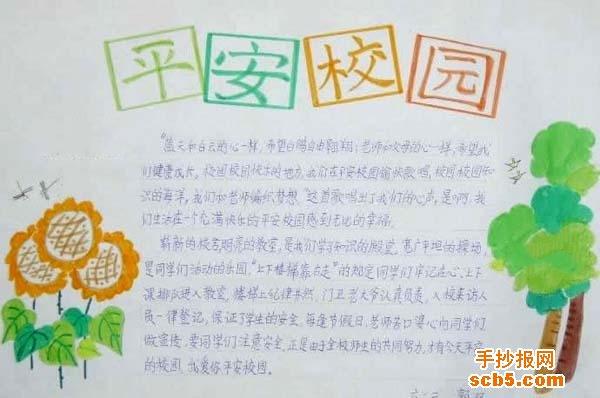 平安校园
“蓝天和白云的心一样，希望白鸽自由翱翔；老师和父母的心一样，希望我
们健康成长。校园校园快乐的地方，我们在平安校园愉快歌唱，校园校园知
识的海洋，我们和老师编织梦想。”这首歌唱出了我们的心声，是啊，我
们生活在一个充满快乐的平安校园感到无比的幸福。
崭新的校舍明亮的教室，是我们学习知识的殿堂，宽广平坦的操场，
是同学们活动的乐园。“上下楼梯靠右走”的规定同学们牢记在心，上下
课排队进入教室，楼梯上纪律井然，门卫老大爷认真负责，入校来访人
员一律登记，保证了学生的安全，每逢节假日，老师苦口婆心向同学们
做宣传，要同学们注意安全，正是由于全校师生的共同努力，才有今天平安
的校园，我爱你平安校园。
手抄报网
scb5.com